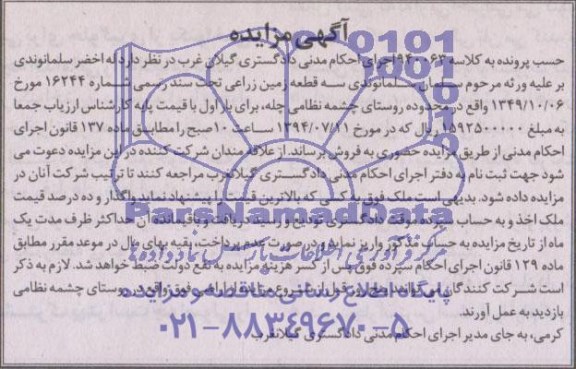 آگهی مزایده
حسب پرونده به کلاسه ۹۴۰۰۶۳ اجرای احکام مدنی دادگستری گیلان غرب در نظر دارد له اخضر سلمانوندی
بر علیه ورثه مرحوم سلمانوندی سه قطعه زمین زراعی تحت سند رسمی شماره ۱۶۲۴۴ مورخ
۱۳۴۹/۱۰/۰۶ واقع در محدوده روستای چشمه نظامی چله، برای بار اول با قیمت پایه کارشناس ارزیاب جمعا
به مبلغ ۱۵۹۲۵۰۰۰۰۰ ریال که در مورخ ۱۳۹۴/۰۷/۱۱ ساعت ۱۰ صبح را مطابق ماده ۱۳۷ قانون اجرای
احکام مدنی از طریق مزایده حضوری به فروش برساند. از علاقه مندان شرکت کننده در این مزایده دعوت می
شود جهت ثبت نام به دفتر اجرای احکام مدنی دادگستری گیلانغرب مراجعه کنند تا ترتیب شرکت آنان در
مزایده داده شود. بدیهی است ملک فوق به کسی که بالاترین قیمت را پیشنهاد نماید واگذار و ده درصد قیمت
ملک اخذ و به حساب سپرده دادگستری تودیع و رسید دریافت و باقیمانده آن حداکثر ظرف مدت یک
ماه از تاریخ مزایده به حساب مذکور واریز نماید و در صورت عدم پرداخت، بقیه بهای مال در موعد مقرر مطابق
ماده ۱۲۹ قانون اجرای احکام سپرده فوق پس از کسر هزینه مزایده به نفع دولت ضبط خواهد شد. لازم به ذکر
است شرکت کنندگان می توانند قبل از شروع مزایده از اراضی فوق واقع در روستای چشمه نظامی
بازدید به عمل آورند.
کرمی، به جای مدیر اجرای احکام مدنی دادگستری گیلانغرب
ParsNamadData
مرکز فرآوری اطلاعات پارس نماد داده ها
پایگاه اطلاع رسانی مناقصه و مزایده
۰۲۱-۸۸۳۴۹۶۷۰-۵